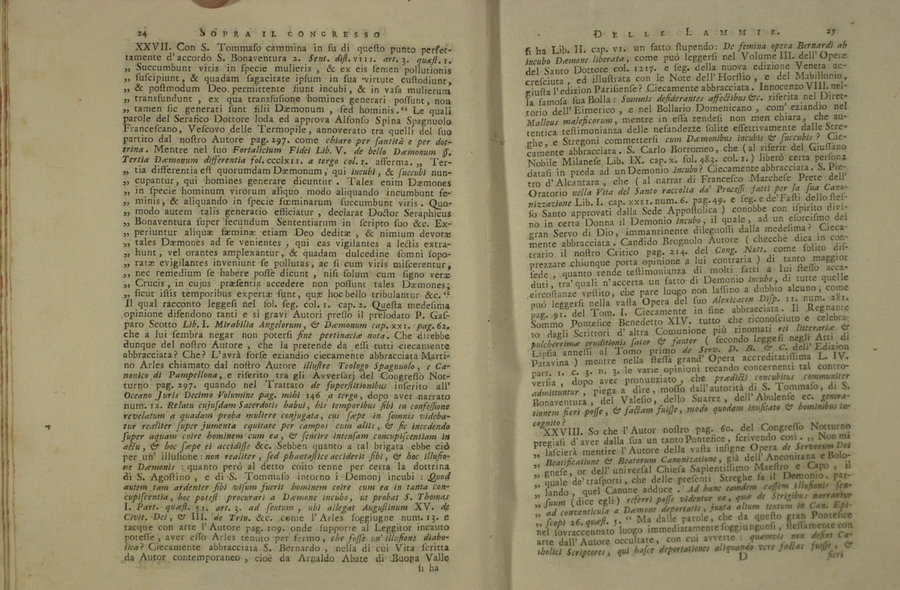 24 SOPRA IL CONGRESSO
XXVII. Con S. Tommaso cammina in su di questo punto perfet-
tamente d'accordo S. Bonaventura 2. Sent. dist. VIII. art. 3. quæst. 1.
„ Succumbunt viris in specie mulieris, & ex eis semen pollutionis
„ suscipiunt, & quadam sagacitate ipsum in sua virtute custodiunt,
„ & postmodum Deo permittente fiunt incubi, & in vasa mulierum
„ transfundunt, ex qua transfusione homines generari possunt, non
„ tamen sic generati sunt filii Dæmonum, sed hominis." Le quali
parole del Serafico Dottore loda ed approva Alfonso Spina Spagnuolo
Francescano, Vescovo delle Termopile, annoverato tra quelli del suo
partito dal nostro Autore pag. 297. come chiaro per santità e per dot-
trina. Mentre nel suo Fortalicium Fidei Lib. V. de bello Dæmonum §.
Tertia Dæmonum differentia fol. ccclxii. a tergo col. 1. afferma. „ Ter-
„ tia differentia est quorumdam Dæmonum, qui incubi, & succubi nun-
„ cupantur, qui homines generare dicuntur. Tales enim Dæmones
„ in specie hominum virorum aliquo modo aliquando incumbunt fe-
„ minis, & aliquando in specie fœminarum succumbunt viris. Quo-
„ modo autem talis generatio efficiatur, declarat Doctor Seraphicus
„ Bonaventura super secundum Sententiarum in scripto suo &c. Ex-
„ periuntur aliquæ fæminæ etiam Deo deditæ, & nimium devotæ
„ tales Dæmones ad se venientes, qui eas vigilantes a lectis extra-
„ hunt, vel orantes amplexantur, & quadam dulcedine somni sopo-
„ ratæ evigilantes inveniunt se pollutas, ac si cum viris miscerentur,
„ nec remedium se habere posse dicunt, nisi solum cum signo veræ
„ Crucis, in cujus præsentia accedere non possunt tales Dæmones;
„ sicut istis temporibus expertæ sunt, quæ hoc bello tribulantur &c."
Il qual racconto leggesi nel fol. seg. col. 1. cap. 2. Questa medesima
opinione difendono tanti e sì gravi Autori presso il prelodato P. Gas-
paro Scotto Lib. I. Mirabilia Angelorum, & Dæmonum cap. XXI. pag. 62.
che a lui sembra negar non potersi sine pertinaciæ nota. Che direbbe
dunque del nostro Autore, che la pretende da essi tutti ciecamente
abbracciata? Che? L'avrà forse eziandio ciecamente abbracciata Marti-
no Arles chiamato dal nostro Autore Illustre Teologo Spagnuolo, e Ca-
nonico di Pampellona, e riferito tra gli Avversarj del Congresso Not-
turno pag. 297. quando nel Trattato de superstitionibus inserito all'
Oceano Juris Decimo Volumine pag. mihi 146 a tergo, dopo aver narrato
num. 12. Relatu cujusdam Sacerdotis habui, his temporibus sibi in confessione
revelatum a quadam proba muliere conjugata, cui sæpe in somnis videba-
tur realiter super jumenta equitare per campos cum aliis, & sic incedendo
super aquam coire hominem cum ea, & sentire intensam concupiscentiam in
actu, & hoc sæpe ei accidisse &c. Sebben quanto a tal brigata ebbe ciò
per un' illusione: non realiter, sed phantastice acciderit sibi, & hoc illusio-
ne Dæmonis: quanto però al detto coito tenne per certa la dottrina
di S. Agostino, e di S. Tommaso intorno i Demonj incubi: Quod
autem tam ardenter sibi visum fuerit hominem coire cum ea in tanta con-
cupiscentia, hoc potest procurari a Dæmone incubo, ut probat S. Thomas
I. Part. quæst. 51. art. 3. ad sextum, ubi allegat Augustinum XV. de
Civit. Dei, & III. de Trin. &c. come l'Arles soggiugne num. 13. e
tacque con arte l'Autore pag. 109. onde supporre al Leggitor incauto
potesse, aver esso Arles tenuto per fermo, che fosse un' illusione diabo-
lica? Ciecamente abbracciata S. Bernardo, nella di cui Vita scritta
da Autor contemporaneo, cioè da Arnaldo Abate di Buona Valle
si ha
DELLE LAMMIE. 25
si ha Lib. II. cap. VI. un fatto stupendo: De femina opera Bernardi ab
incubo Dæmone liberata, come può leggersi nel Volume III. dell'Opere
del Santo Dottore col. 1217. e seg. della nuova edizione Veneta ac-
cresciuta, ed illustrata con le Note dell'Horstio, e del Mabillonio,
giusta l'edizion Parisense? Ciecamente abbracciata. Innocenzo VIII. nel-
la famosa sua Bolla: Summis desiderantes affectibus &c. riferita nel Diret-
torio dell'Eimerico, e nel Bollario Domenicano, com'eziandio nel
Malleus maleficorum, mentre in essa rendesi non men chiara, che au-
tentica testimonianza delle nefandezze solite effettivamente dalle Stre-
ghe, e Stregoni commettersi cum Dæmonibus incubis & succubis? Cie-
camente abbracciata. S. Carlo Borromeo, che (al riferir del Giussano
Nobile Milanese Lib. IX. cap. X. fol. 483. col. 1.) liberò certa persona
datasi in preda ad un Demonio incubo? Ciecamente abbracciata. S. Pie-
tro d'Alcantara, che (al narrar di Francesco Marchese Prete dell'
Oratorio nella Vita del Santo raccolta da' Processi fatti per la sua Cano-
nizzazione Lib. I. cap. XXII. num. 6. pag. 49. e seg. e de' Fasti dello stes-
so Santo approvati dalla Sede Appostolica) conobbe con ispirito divi-
no in certa Donna il Demonio incubo, il quale, ad un esorcismo del
gran Servo di Dio, immantinente dileguossi dalla medesima? Cieca-
mente abbracciata. Candido Brognolo Autore (checchè dica in con-
trario il nostro Critico pag. 214. del Cong. Nott. come solito dis-
prezzare chiunque porta opinione a lui contraria) di tanto maggior
fede, quanto rende testimonianza di molti fatti a lui stesso acca-
duti, tra' quali n'accerta un fatto di Demonio incubo, di tutte quelle
circostanze vestito, che pare luogo non lascino a dubbio alcuno, come
può leggersi nella vasta Opera del suo Alexicacon Disp. II. num. 281.
pag. 91. del Tom. I. Ciecamente in fine abbracciata. Il Regnante
Sommo Pontefice Benedetto XIV. tutto che riconosciuto e celebra-
to dagli Scrittori d'altra Comunione più rinomati rei litterariæ &
pulcherrimæ eruditionis sator & fautor (secondo leggesi negli Atti di
Lipsia annessi al Tomo primo de Serv. D. B. & C. dell'Edizion
Patavina) mentre nella stessa grand' Opera accreditatissima L. IV.
part. 1. C. 3. n. 3. le varie opinioni recando concernenti tal contro-
versia, dopo aver pronunziato, che prædicti concubitus communiter
admittuntur, piega a dire, mosso dall'autorità di S. Tommaso, di S.
Bonaventura, del Valesio, dello Suarez, dell'Abulense ec. genera-
tionem fieri posse, & factam fuisse, modo quodam inusitato & hominibus in-
cognito?
XXVIII. So che l'Autor nostro pag. 60. del Congresso Notturno
pregiasi d'aver dalla sua un tanto Pontefice, scrivendo così. „ Non mi
„ lascierà mentire l'Autore della vasta insigne Opera de Servorum Dei
„ Beatificatione & Beatorum Canonizatione, già dell'Anconitana e Bolo-
„ gnese, or dell'universal Chiesa Sapientissimo Maestro e Capo, il
„ quale de' trasporti, che delle presenti Streghe fa il Demonio, par-
„ lando, qual Canone adduce. Ad hanc eamdem classem illusionis sen-
„ suum (dice egli) referri posse videntur ea, quæ de Strigibus narrantur
„ ad conventicula a Dæmone deportatis, juxta alium textum in Can. Epi-
„ scopi 26. quæst. 5." Ma dalle parole, che da questo gran Pontefice
nel sovraccennato luogo immediatamente soggiungonsi, stessamente con
arte dall'Autore occultate, con cui avverte: quamvis non desint Ca-
tholici Scriptores, qui hasce deportationes aliquando vere factas fuisse, &
D fieri